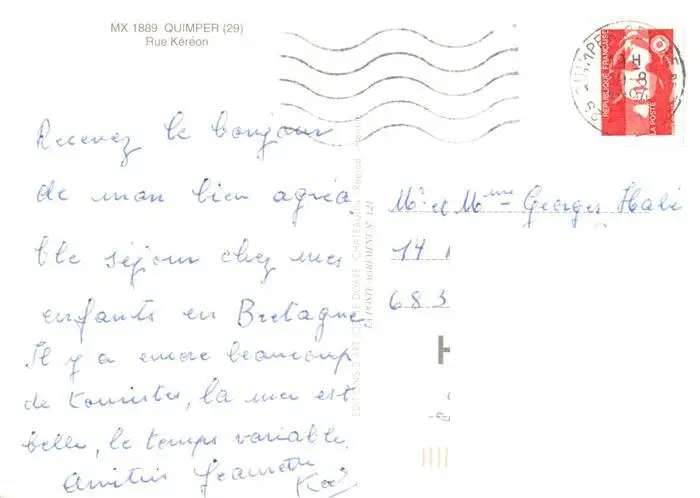 MX 1889 QUIMPER (29)
Rue Kéréon
RÉPUBLIQUE FRANÇAISE
LA POSTE
Recevez le bonjour
de mon bien agréa
ble séjour chez mes
enfants en Bretagne
Il y a encore beaucoup
de touristes, la mer est
belle, le temps variable.
Amitiés Jeannette
Mr et Mme Georges
14
683
EDITIONS D'ART JOS LE DOARÉ CHATEAULIN
LA POSTE AGRÉMENT N° 121